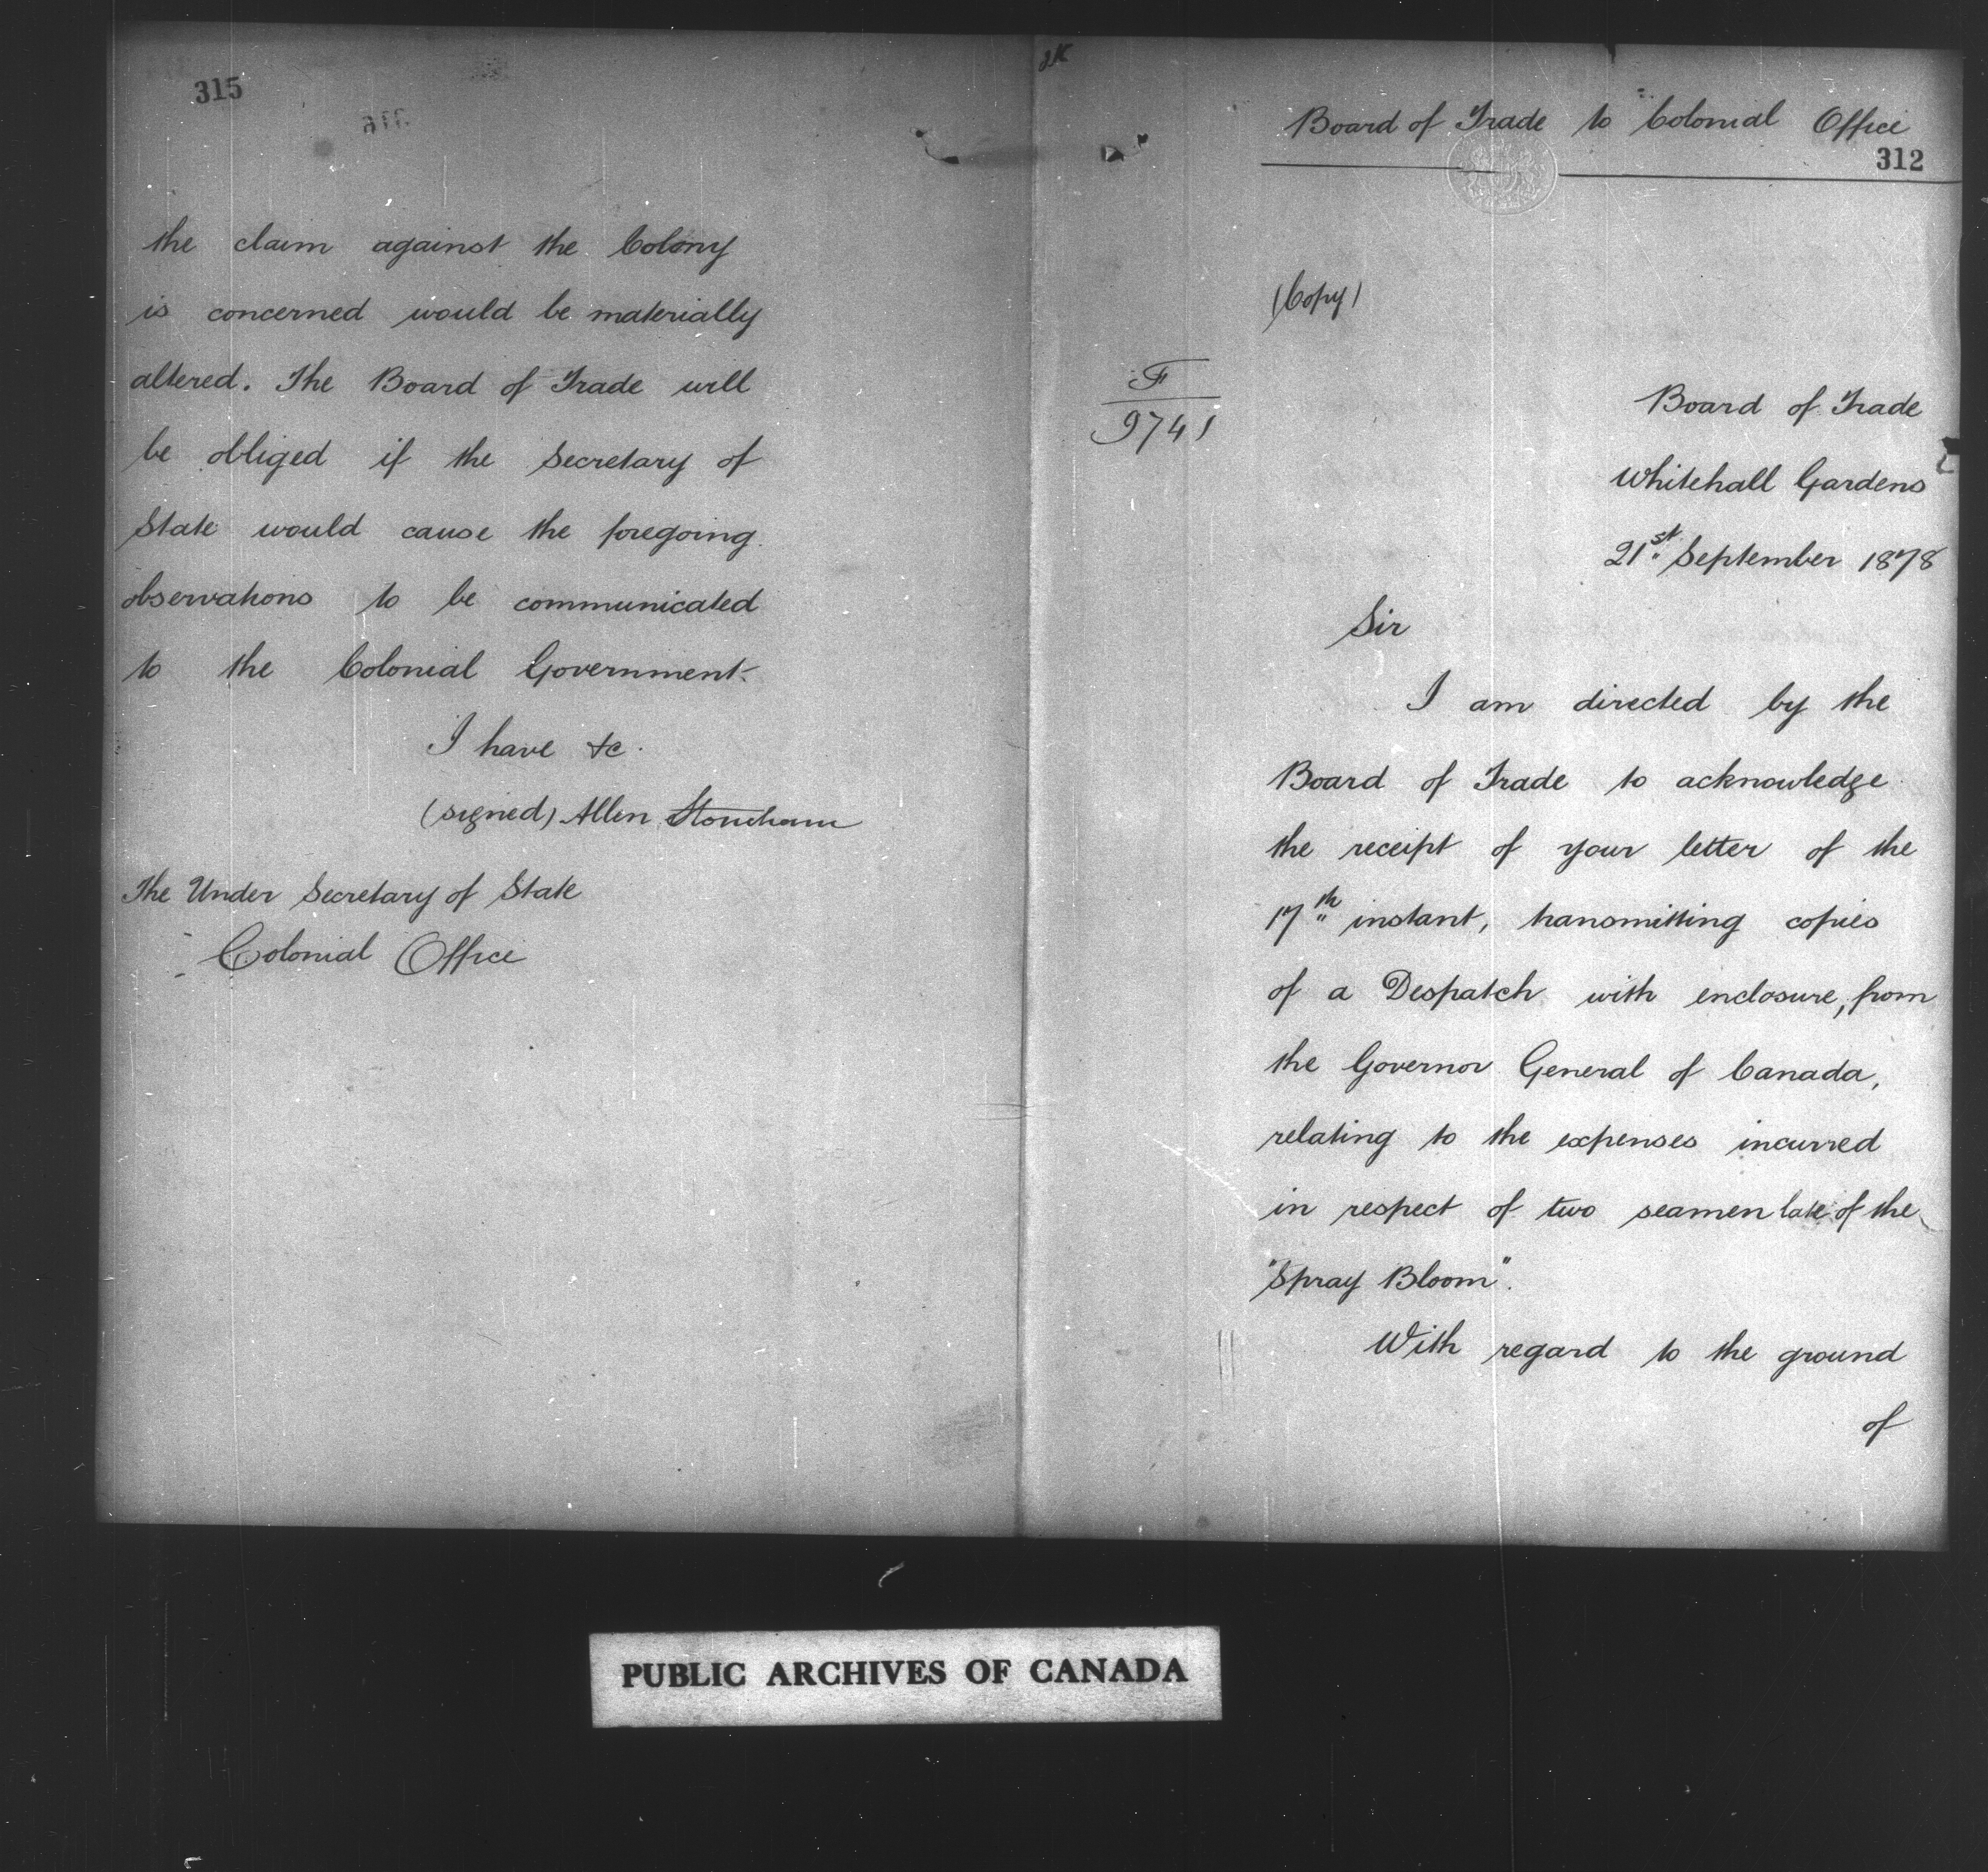 315
the claim against the Colony
is concerned would be materially
altered. The Board of Trade will
be obliged if the Secretary of
State would cause the foregoing
observations to be communicated
to the Colonial Government.
I have &c.
(signed) Allen Stoneham
The Under Secretary of State
Colonial Office
Board of Trade to Colonial Office
312
(Copy)
F
9741
Board of Trade
Whitehall Gardens
21st September 1878
Sir
I am directed by the
Board of Trade to acknowledge
the receipt of your letter of the
17th instant, transmitting copies
of a Despatch with enclosure, from
the Governor General of Canada,
relating to the expenses incurred
in respect of two seamen late of the
"Spray Bloom".
With regard to the ground
of
PUBLIC ARCHIVES OF CANADA